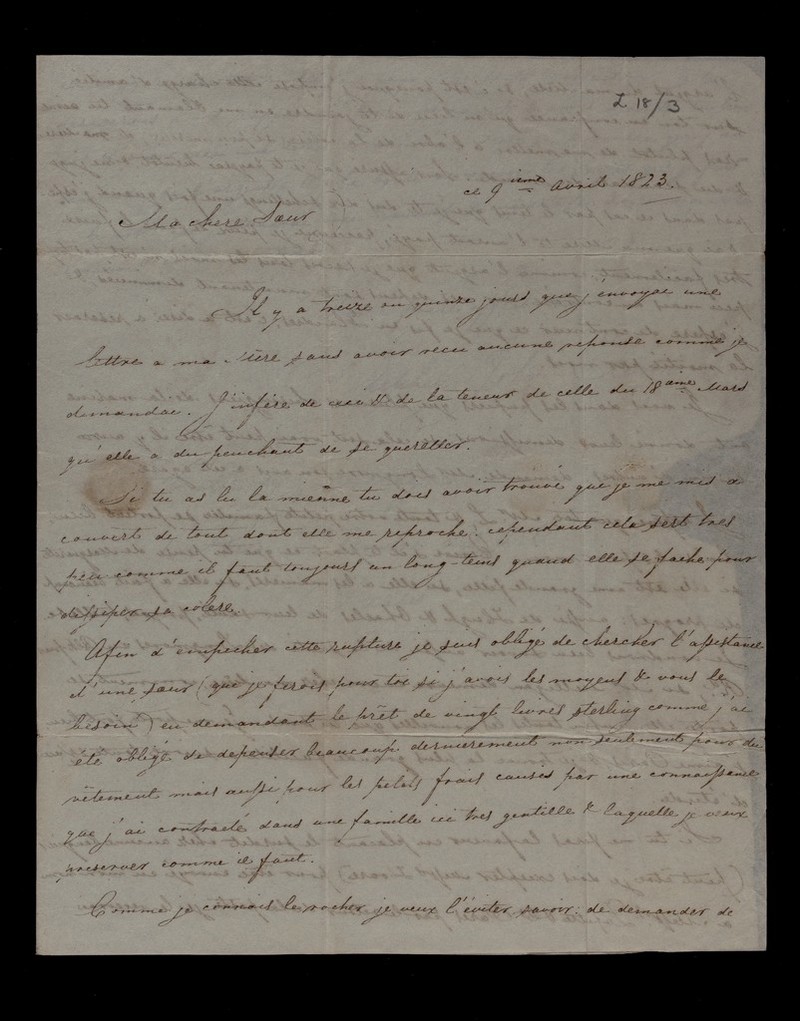 L 18/3
ce 9ieme Avril 1823.
Ma chere Sœur
Il y a treize ou quinze jours que j'envoyae une
lettre a ma Mere sans avoir recu aucune reponse comme je
demandae. J'infére de ceci & de la teneur de celle du 18aime Mars
qu'elle a du penchant de se quereller.
Si tu as lu la mienne tu dois avoir trouvé que je me mis a
couvert de tout dont elle me reproche. cependant cela sert tres
peu comme il faut toujours un long-tems quand elle se fache pour
dissiper sa colere
Afin d'empecher cette rupture je suis obligé de chercher l'assistance
d'une sœur (que je ferois pour toi si j'avois les moyens & vous le
besoin) en demandant le prêt de vingt livres sterling comme j'ai
été obligé de depenser beaucoup dernierement non seulement pour du
vêtement mais aussi pour les petits frais causés par une connaissance
que j'ai contracté dans une famille ici tres gentille & laquelle je veux
preserver comme il faut.
Comme je connais le rocher je veux l'éviter savoir: de demander de